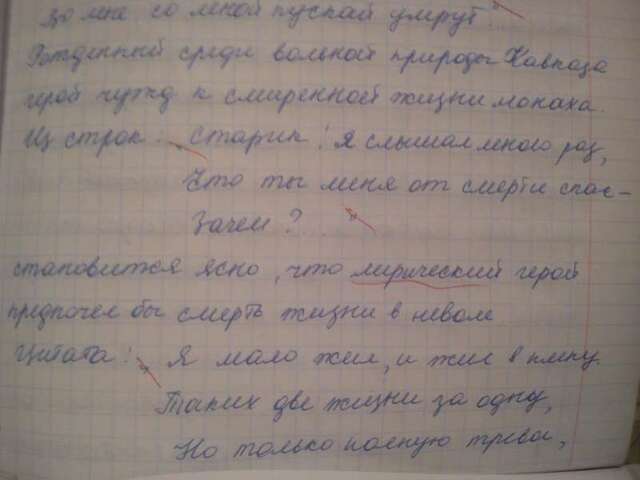 во мне со мной пускай умрут".
Рожденный среди вольной природы Кавказа
герой чужд к смиренной жизни монаха.
Из строк: „Старик! Я слышал много раз,
Что ты меня от смерти спас-
Зачем?..."
становится ясно, что лирический герой
предпочел бы смерть жизни в неволе
Цитата: „Я мало жил, и жил в плену.
Таких две жизни за одну,
Но только полную тревог,